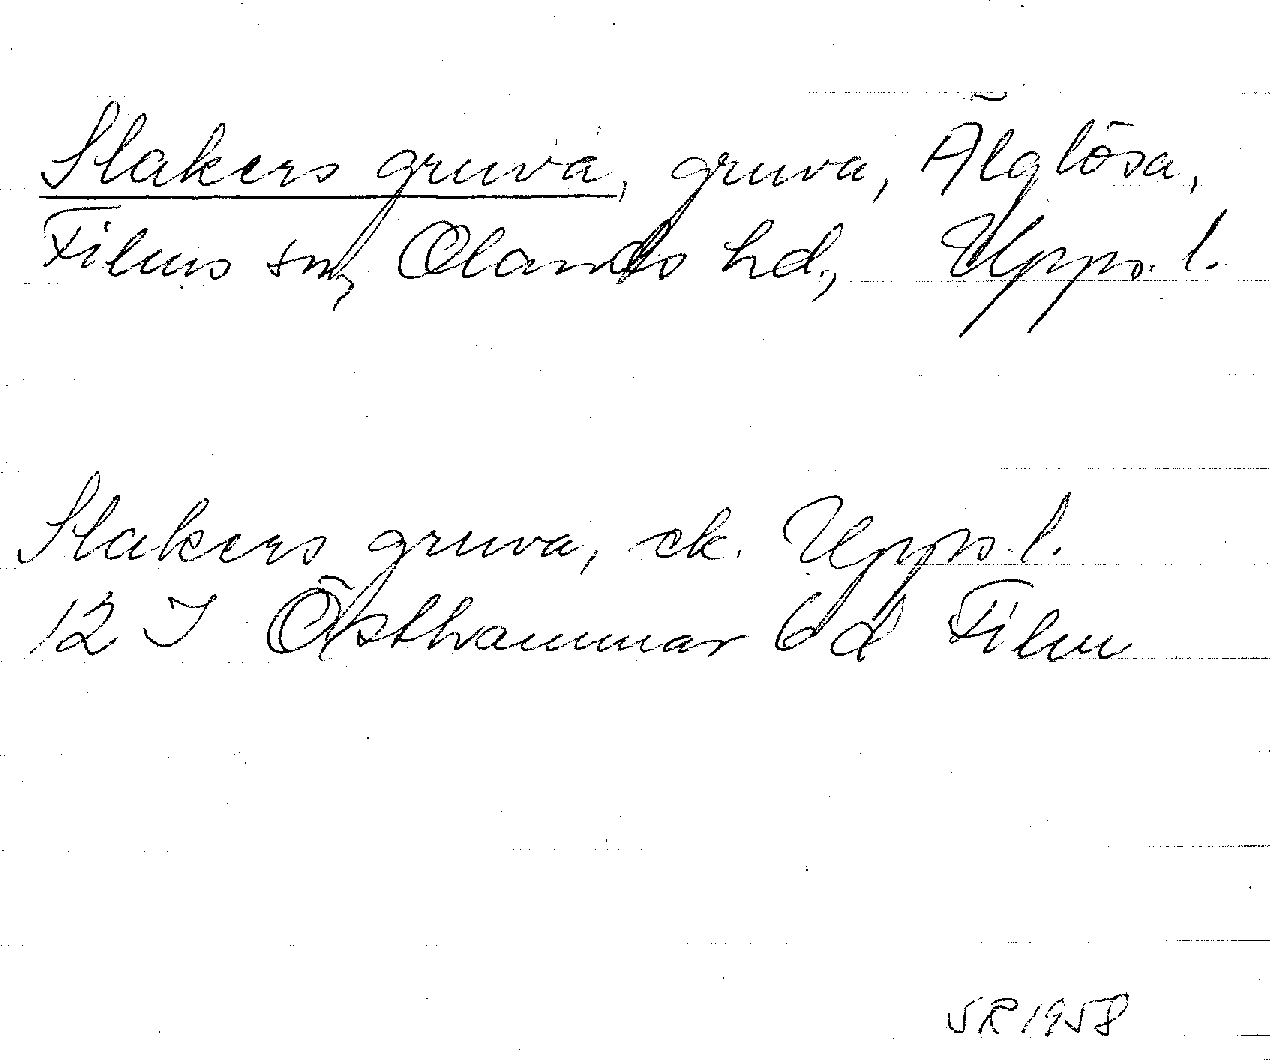 Slakers gruva, gruva, Älglösa,
Films sn, Olands hd., Upps. l.
Slakers gruva, ek. Upps. l.
12 I Östhammar 6 d Film
SR 1958